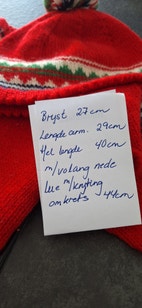 Bryst. 27cm
Lengde arm. 29cm
Hel lengde 40cm
m/volang nede
Lue m/knyting
omkrets 44cm